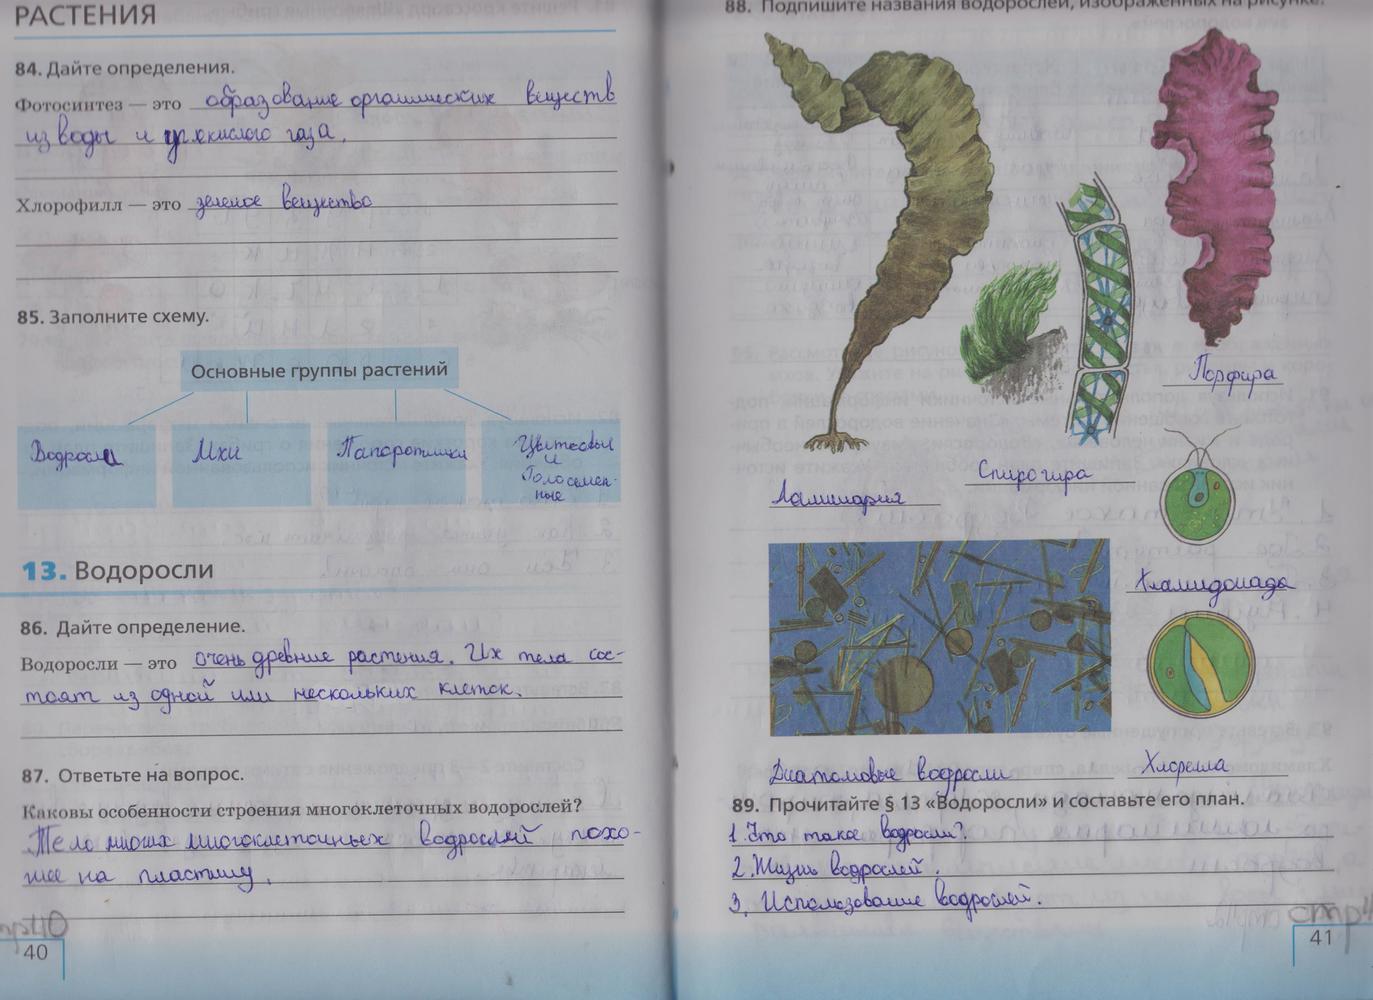 РАСТЕНИЯ
84. Дайте определения.
Фотосинтез — это образование органических веществ
из воды и углекислого газа.
Хлорофилл — это зеленое вещество
85. Заполните схему.
Основные группы растений
Водросли
Мхи
Папоротники
Цветковые
и
Голосемен-
ные
13. Водоросли
86. Дайте определение.
Водоросли — это очень древние растения. Их тела сос-
тоят из одной или нескольких клеток.
87. Ответьте на вопрос.
Каковы особенности строения многоклеточных водорослей?
Тело многих многоклеточных водрослей похо-
жее на пластину.
стр40
40
88. Подпишите названия водорослей, изображённых на рисунке.
Порфира
Спирогира
Ламинария
Хламидонада
Диатомовые водросли
Хлорелла
89. Прочитайте § 13 «Водоросли» и составьте его план.
1. Что такое водросли?
2. Жизнь водрослей.
3. Использование водрослей.
41